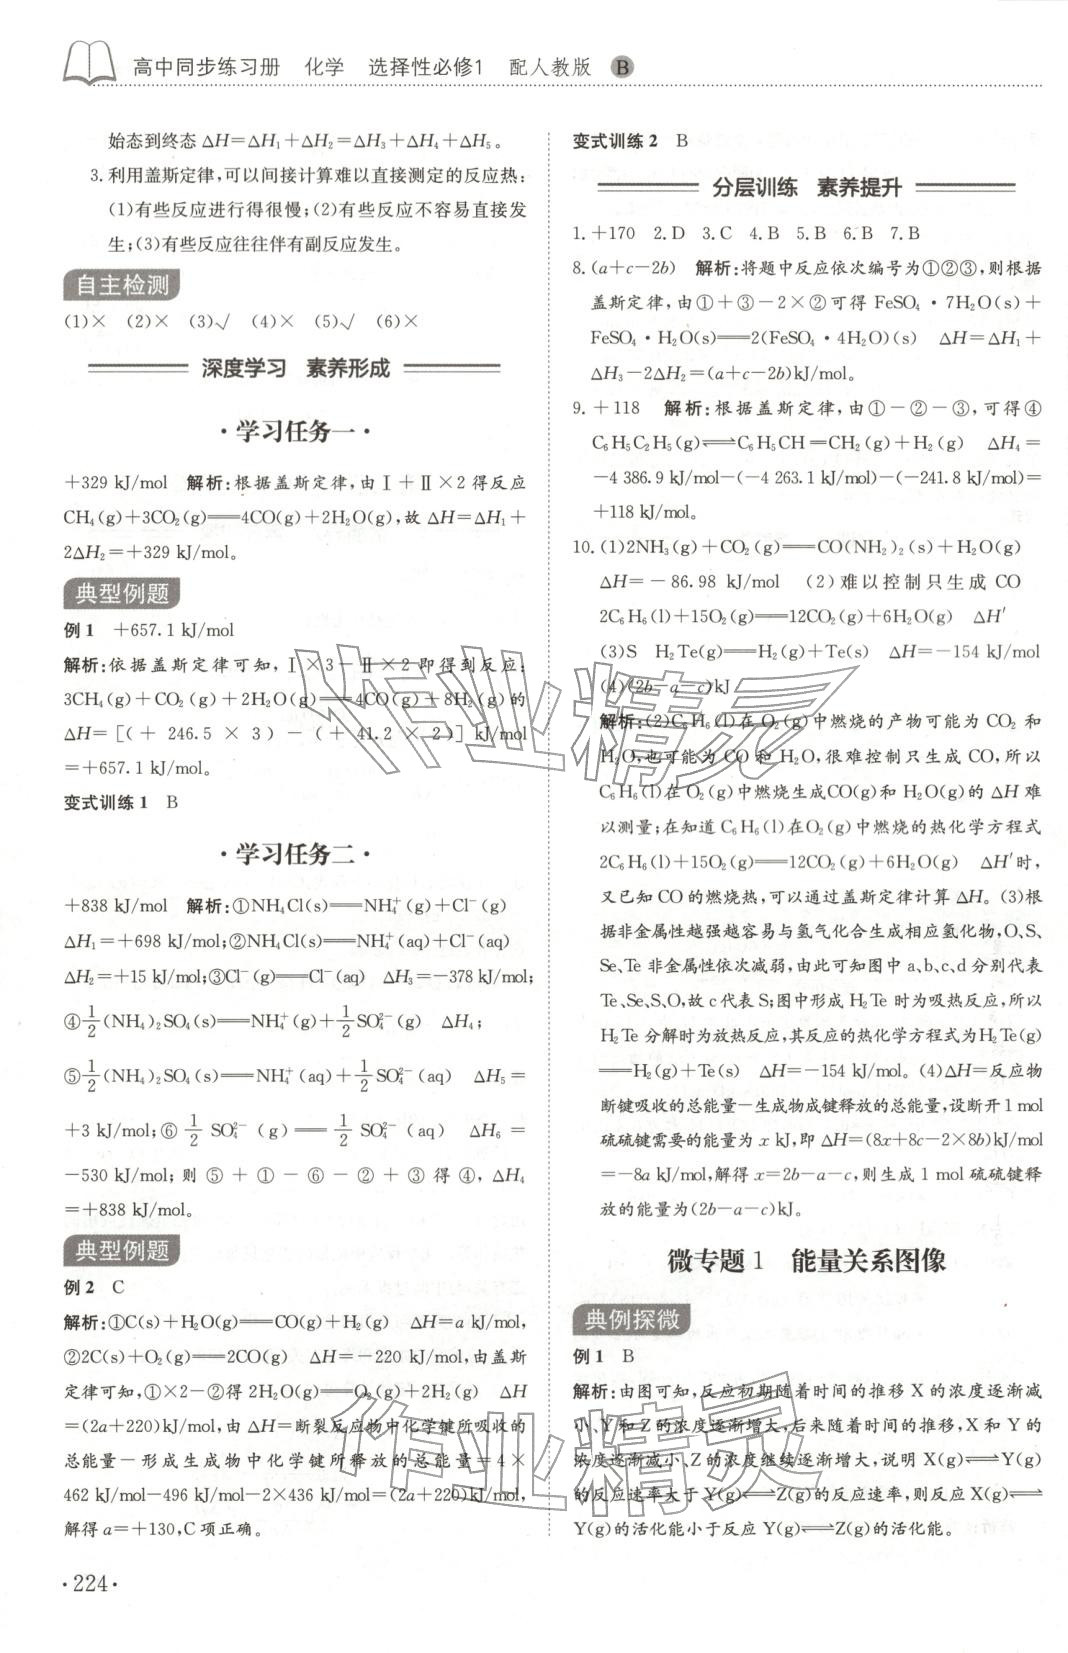 高中同步练习册 化学 选择性必修1 配人教版 B
始态到终态 ΔH=ΔH₁+ΔH₂=ΔH₃+ΔH₄+ΔH₅。
3. 利用盖斯定律,可以间接计算难以直接测定的反应热:
(1)有些反应进行得很慢;(2)有些反应不容易直接发
生;(3)有些反应往往伴有副反应发生。
自主检测
(1)× (2)× (3)√ (4)× (5)√ (6)×
深度学习 素养形成
·学习任务一·
+329 kJ/mol 解析:根据盖斯定律,由Ⅰ+Ⅱ×2得反应
CH₄(g)+3CO₂(g)══4CO(g)+2H₂O(g),故 ΔH=ΔH₁+
2ΔH₂=+329 kJ/mol。
典型例题
例1 +657.1 kJ/mol
解析:依据盖斯定律可知,Ⅰ×3-Ⅱ×2即得到反应:
3CH₄(g)+CO₂(g)+2H₂O(g)══4CO(g)+8H₂(g)的
ΔH=[(+246.5×3)-(+41.2×2)] kJ/mol
=+657.1 kJ/mol。
变式训练1 B
·学习任务二·
+838 kJ/mol 解析:①NH₄Cl(s)══NH₄⁺(g)+Cl⁻(g)
ΔH₁=+698 kJ/mol;②NH₄Cl(s)══NH₄⁺(aq)+Cl⁻(aq)
ΔH₂=+15 kJ/mol;③Cl⁻(g)══Cl⁻(aq) ΔH₃=-378 kJ/mol;
④1/2(NH₄)₂SO₄(s)══NH₄⁺(g)+1/2SO₄²⁻(g) ΔH₄;
⑤1/2(NH₄)₂SO₄(s)══NH₄⁺(aq)+1/2SO₄²⁻(aq) ΔH₅=
+3 kJ/mol;⑥1/2SO₄²⁻(g)══1/2SO₄²⁻(aq) ΔH₆=
-530 kJ/mol;则⑤+①-⑥-②+③得④,ΔH₄
=+838 kJ/mol。
典型例题
例2 C
解析:①C(s)+H₂O(g)══CO(g)+H₂(g) ΔH=a kJ/mol,
②2C(s)+O₂(g)══2CO(g) ΔH=-220 kJ/mol,由盖斯
定律可知,①×2-②得2H₂O(g)══O₂(g)+2H₂(g) ΔH
=(2a+220)kJ/mol,由 ΔH=断裂反应物中化学键所吸收的
总能量-形成生成物中化学键所释放的总能量=4×
462 kJ/mol-496 kJ/mol-2×436 kJ/mol=(2a+220)kJ/mol,
解得 a=+130,C项正确。
·224·
变式训练2 B
分层训练 素养提升
1. +170 2. D 3. C 4. B 5. B 6. B 7. B
8. (a+c-2b) 解析:将题中反应依次编号为①②③,则根据
盖斯定律,由①+③-2×②可得 FeSO₄·7H₂O(s)+
FeSO₄·H₂O(s)══2(FeSO₄·4H₂O)(s) ΔH=ΔH₁+
ΔH₃-2ΔH₂=(a+c-2b)kJ/mol。
9. +118 解析:根据盖斯定律,由①-②-③,可得④
C₆H₅C₂H₅(g)⇌C₆H₅CH=CH₂(g)+H₂(g) ΔH₄=
-4 386.9 kJ/mol-(-4 263.1 kJ/mol)-(-241.8 kJ/mol)=
+118 kJ/mol。
10. (1)2NH₃(g)+CO₂(g)══CO(NH₂)₂(s)+H₂O(g)
ΔH=-86.98 kJ/mol (2)难以控制只生成CO
2C₆H₆(l)+15O₂(g)══12CO₂(g)+6H₂O(g) ΔH′
(3)S H₂Te(g)══H₂(g)+Te(s) ΔH=-154 kJ/mol
(4)(2b-a-c)kJ
解析:(2)C₆H₆(l)在O₂(g)中燃烧的产物可能为CO₂和
H₂O,不可能为CO和H₂O,很难控制只生成CO,所以
C₆H₆(l)在O₂(g)中燃烧生成CO(g)和H₂O(g)的ΔH难
以测量;在知道C₆H₆(l)在O₂(g)中燃烧的热化学方程式
2C₆H₆(l)+15O₂(g)══12CO₂(g)+6H₂O(g) ΔH′时,
又已知CO的燃烧热,可以通过盖斯定律计算ΔH。(3)根
据非金属性越强越容易与氢气化合生成相应氢化物,O、S、
Se、Te非金属性依次减弱,由此可知图中a、b、c、d分别代表
Te、Se、S、O,故c代表S;图中形成H₂Te时为吸热反应,所以
H₂Te分解时为放热反应,其反应的热化学方程式为H₂Te(g)
══H₂(g)+Te(s) ΔH=-154 kJ/mol。(4)ΔH=反应物
断键吸收的总能量-生成物成键释放的总能量,设断开1 mol
硫硫键需要的能量为x kJ,即ΔH=(8x+8c-2×8b)kJ/mol
=-8a kJ/mol,解得x=2b-a-c,则生成1 mol硫硫键释
放的能量为(2b-a-c)kJ。
微专题1 能量关系图像
典例探微
例1 B
解析:由图可知,反应初期随着时间的推移X的浓度逐渐减
小、Y和Z的浓度逐渐增大,后来随着时间的推移,X和Y的
浓度逐渐减小、Z的浓度继续逐渐增大,说明X(g)⇌Y(g)
的反应速率大于Y(g)⇌Z(g)的反应速率,则反应X(g)⇌
Y(g)的活化能小于反应Y(g)⇌Z(g)的活化能。
作业精灵
作业精灵